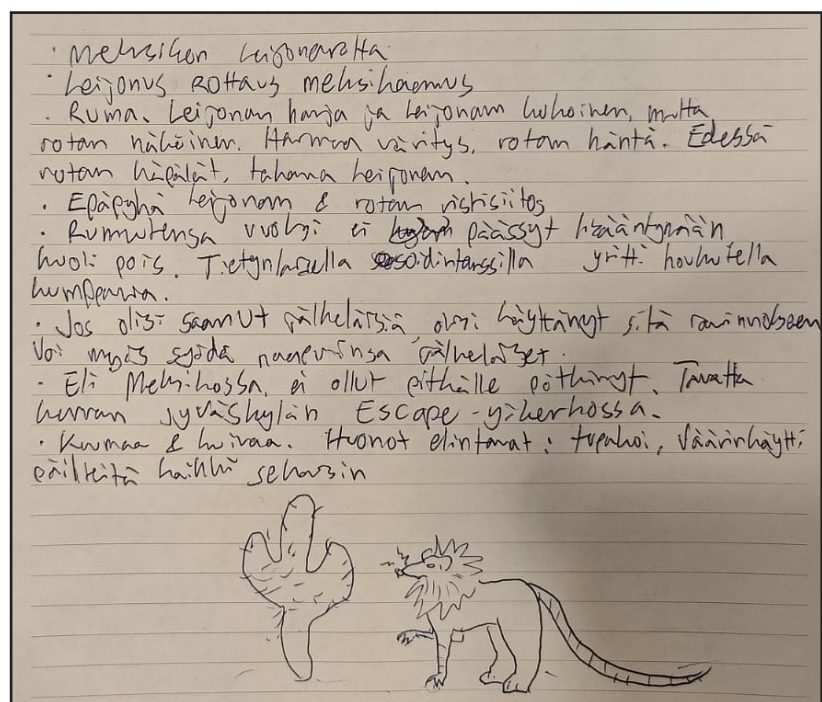 · Meksikon leijonarotta
· Leijonus Rottaus meksikaemus
· Ruma. Leijonan harja ja leijonam kokoinen, mutta
rotan näköinen. Harmaa väritys, rotan häntä. Edessä
rotan käpälät, takana leijonan.
· Epäpyhä leijonan & rotan risteisitos
· Rumuutensa vuoksi ei päässyt lisääntymään
kuoli pois. Tietynlaisella soidintanssilla yritti houkutella
kumppania.
· Jos olisi saanut jälkeläisiä olisi käyttänyt sitä ravinnokseen
Voi myös syödä naapurinsa jälkeläiset.
· Eli Meksikossa, ei ollut pitkälle pötkinyt. Tavattu
kerran Jyväskylän Escape-yökerhossa.
· Kuumaa & kuivaa. Huonot elintavat: tupakoi, väärinkäytti
päihteitä kaikki sekaisin